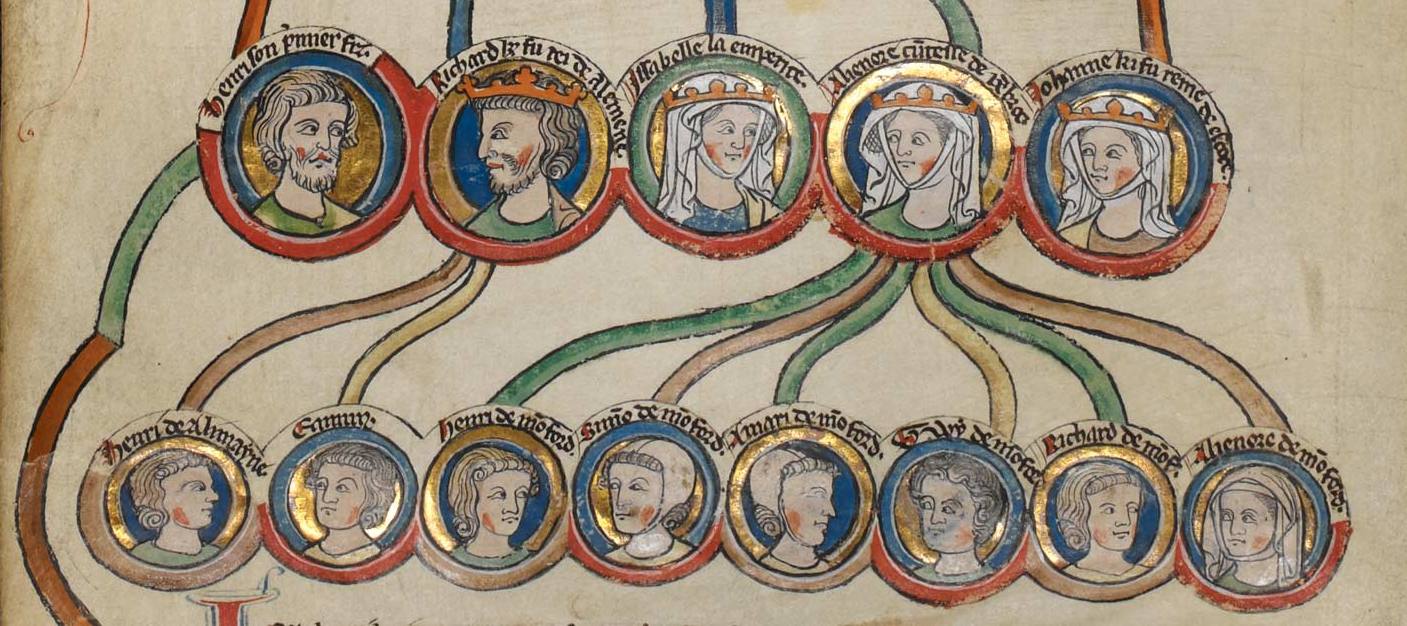 Henri son p̄mier fiz.
Richard ki fu rei de Alemene
Issabelle la emperice.
Alienore cūtesse de
Johanne ki fu reine de
Henri de Almayne
Edmun
Henri de mōford.
Simō de mōford.
Amari de mōford.
de
Richard de mōf.
Alienore de mōford